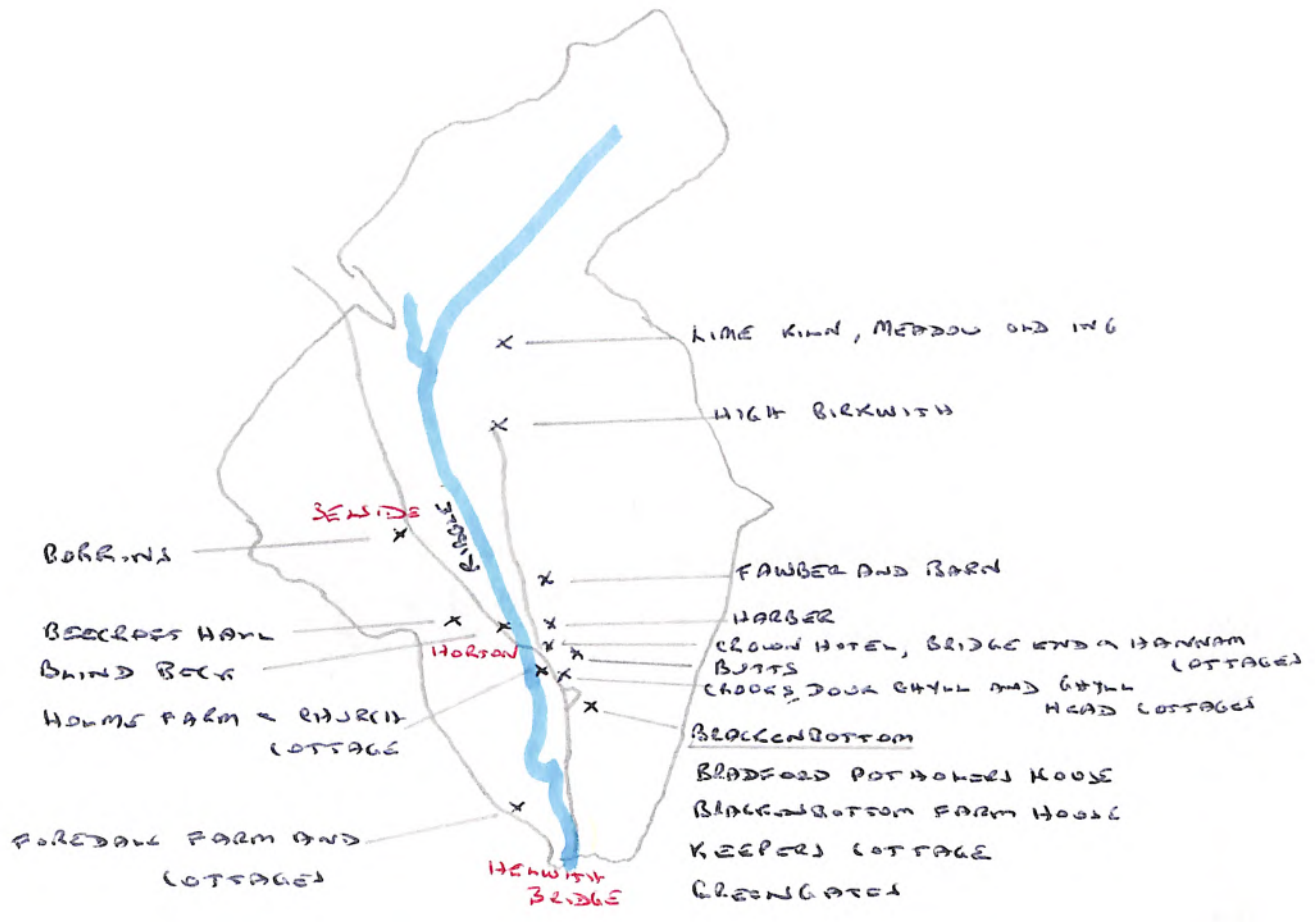 LIME KILN, MEADOW OLD ING
HIGH BIRKWITH
SELSIDE
RIBBLE
BORRINS
FAWBER AND BARN
BEECROFT HALL
HARBER
HORTON
CROWN HOTEL, BRIDGE END & HANNAM
COTTAGES
BLIND BECK
BUTTS
CROOKS, DOUK GHYLL AND GHYLL
HEAD COTTAGES
HOLME FARM & CHURCH
COTTAGE
BRACKENBOTTOM
BRADFORD POTHOLERS HOUSE
BRACKENBOTTOM FARM HOUSE
FOREDALE FARM AND
COTTAGES
KEEPERS COTTAGE
HELWITH
BRIDGE
GREENGATES